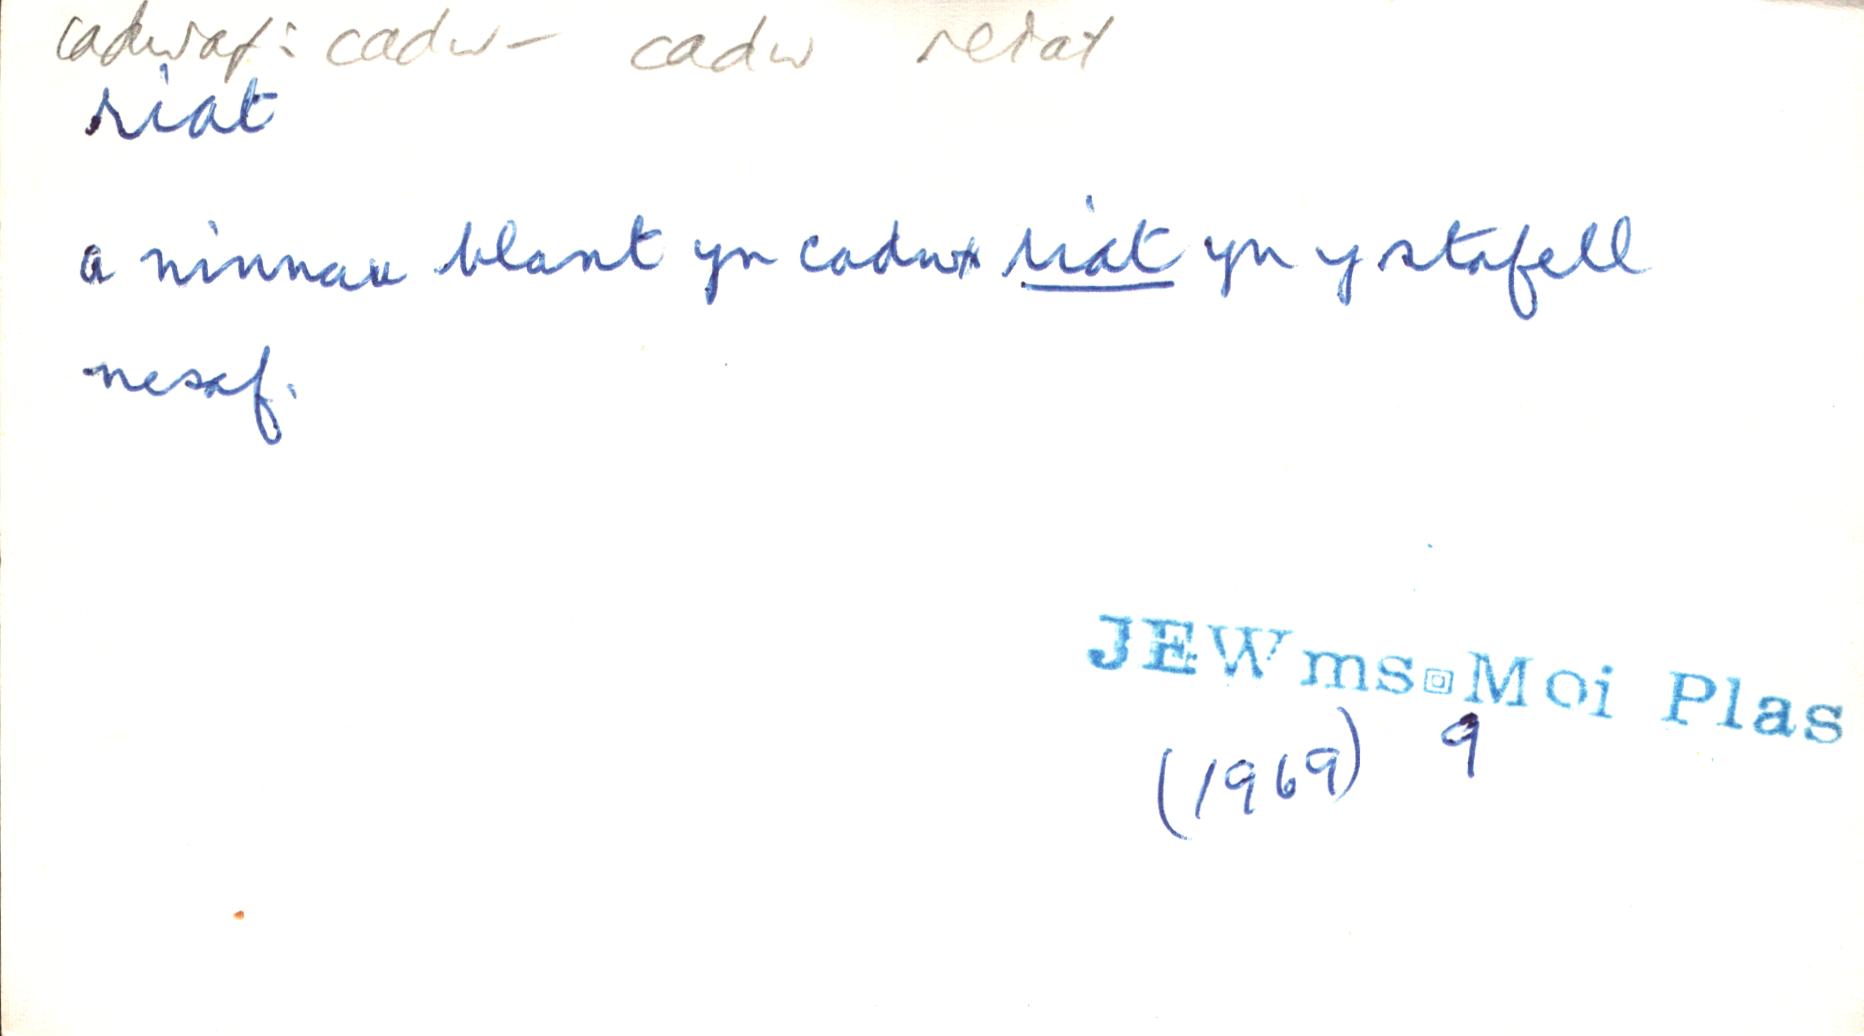 cadwaf: cadw- cadw reiat
riat
a ninnau blant yn cadw riat yn y stafell
nesaf.
JEWms Moi Plas
(1969) 9